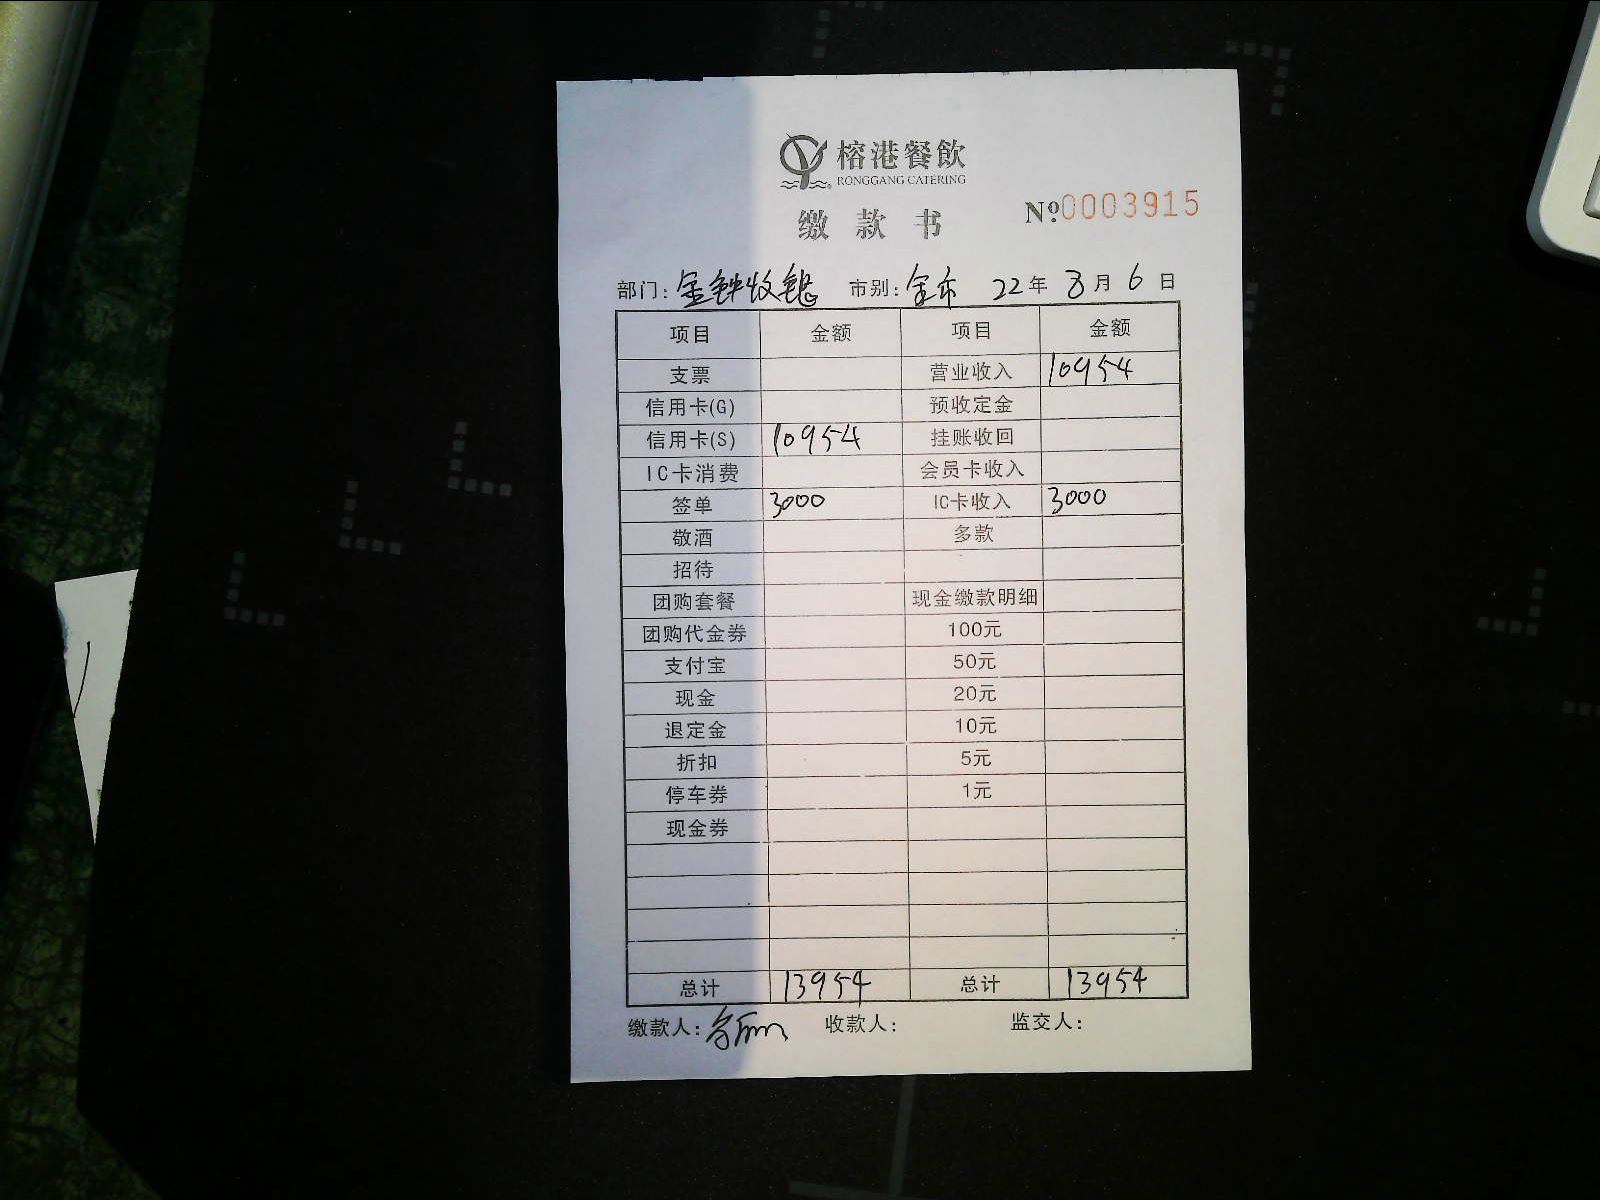 榕港餐飲
RONGGANG CATERING
缴款书
Nº:0003915
部门: 金钟收银 市别: 全市 22年 8月 6日
项目 金额 项目 金额
支票 营业收入 10954
信用卡(G) 预收定金
信用卡(S) 10954 挂账收回
IC卡消费 会员卡收入
签单 3000 IC卡收入 3000
敬酒 多款
招待
团购套餐 现金缴款明细
团购代金券 100元
支付宝 50元
现金 20元
退定金 10元
折扣 5元
停车券 1元
现金券
总计 13954 总计 13954
缴款人: 收款人: 监交人: